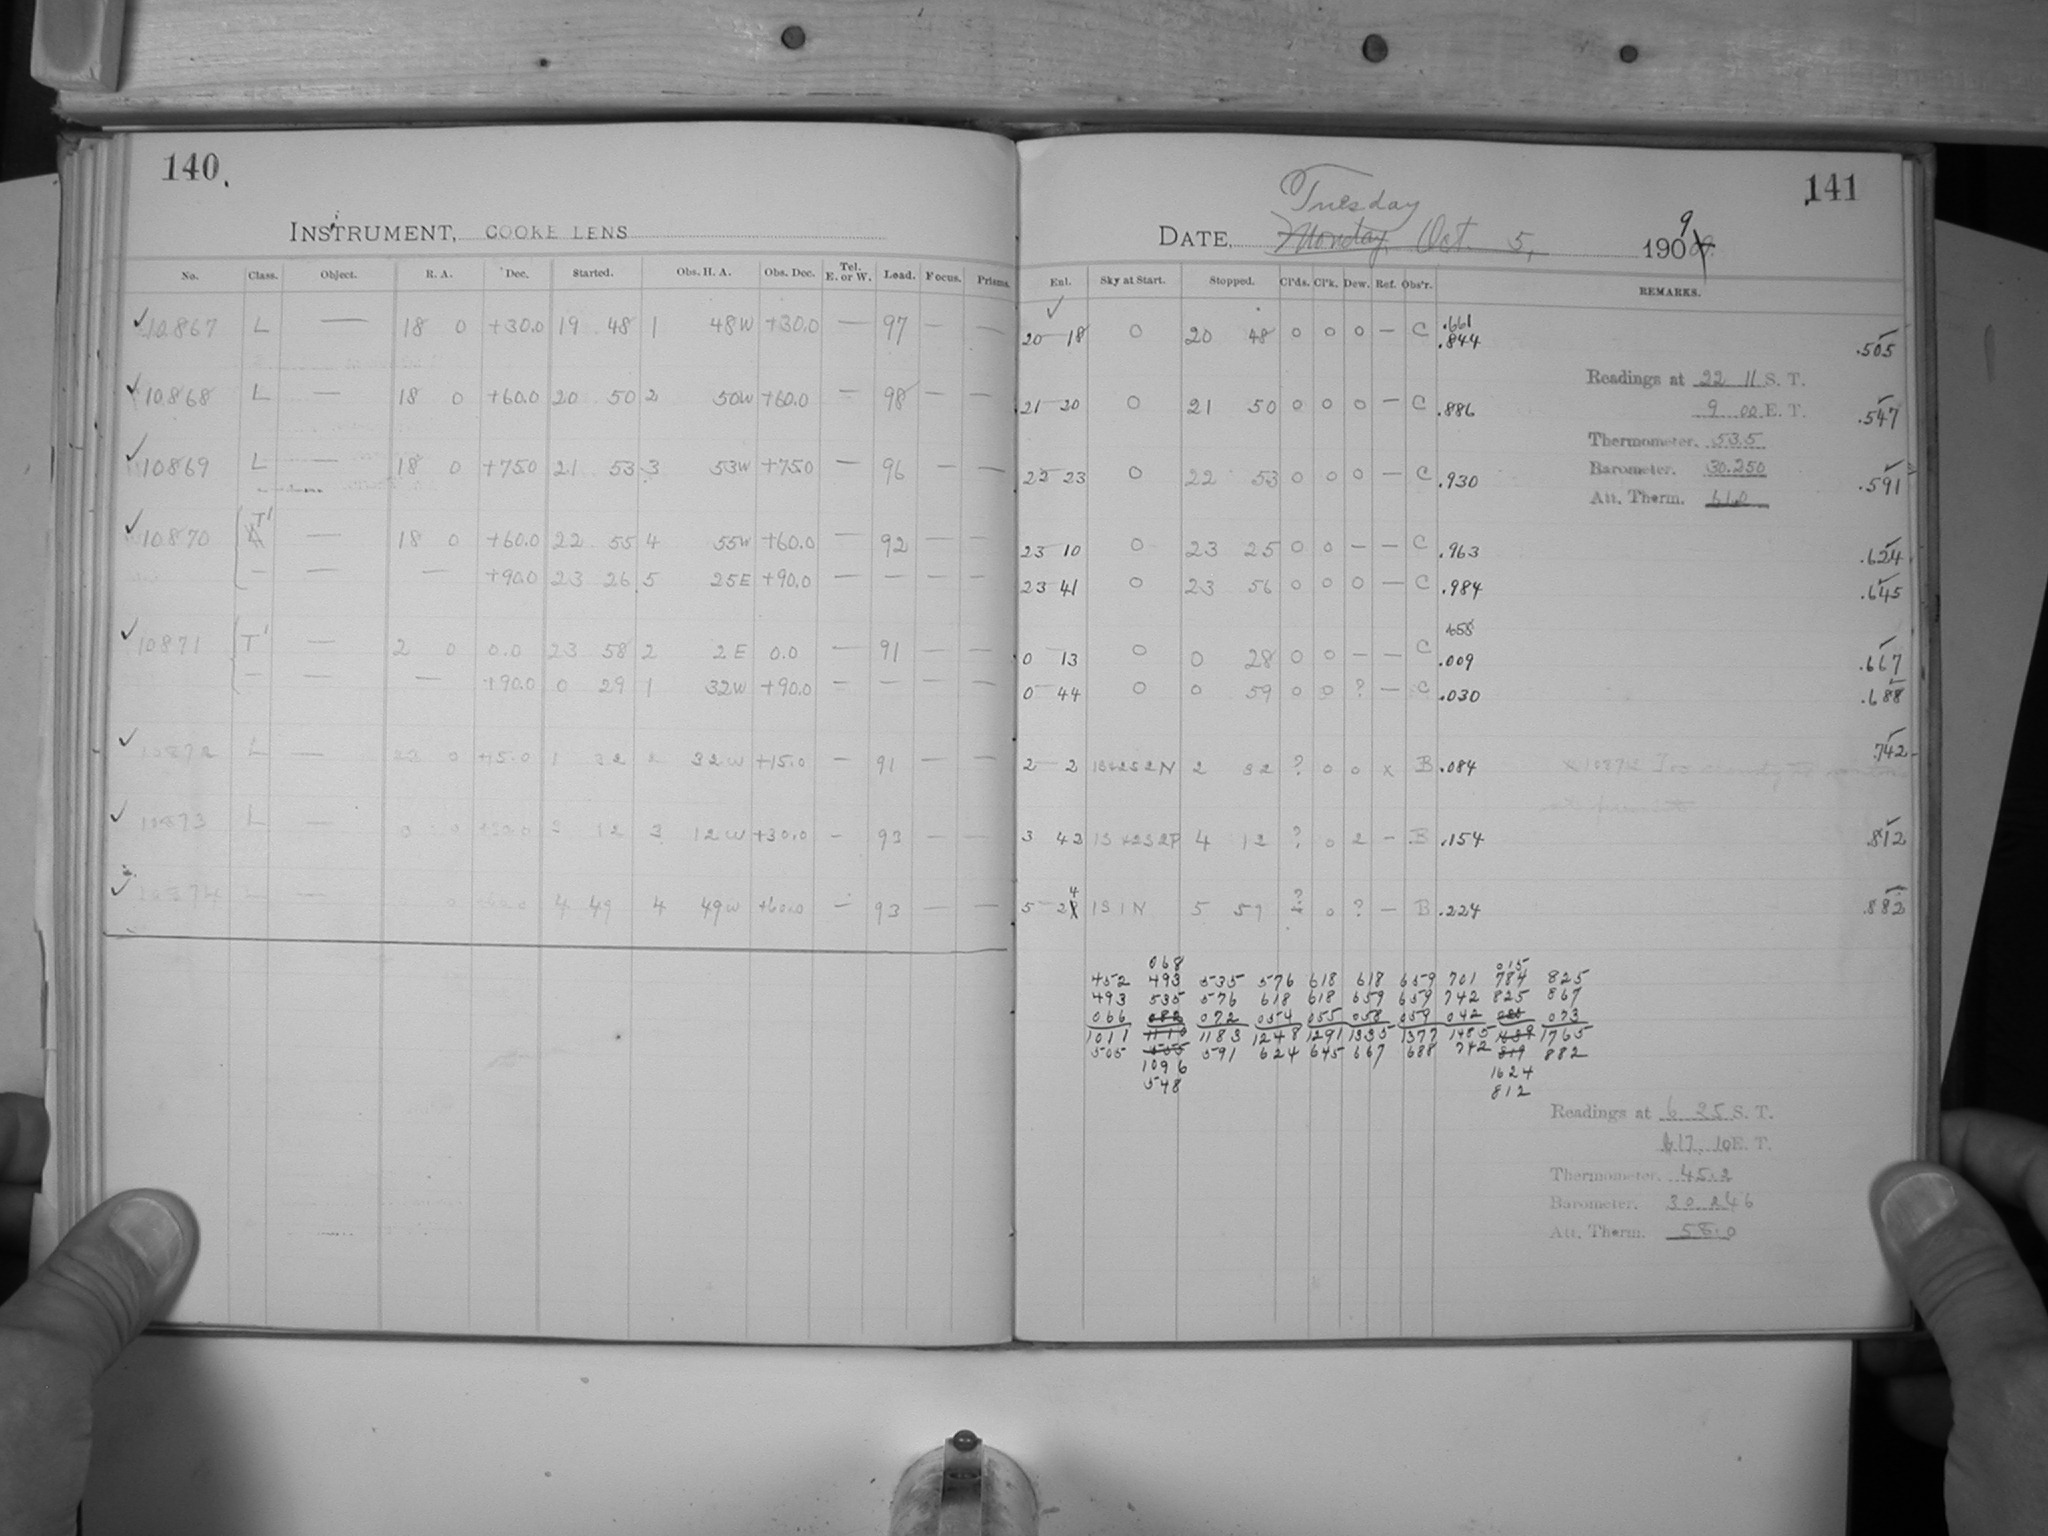 140.
INSTRUMENT, COOKE LENS
No. Class. Object. R. A. Dec. Started. Obs. H. A. Obs. Dec. Tel. E. or W. Lead. Focus. Prisms.
10867 L — 18 0 +30.0 19 48 1 48W +30.0 — 97 — —
10868 L — 18 0 +60.0 20 50 2 50W +60.0 — 98 — —
10869 L — 18 0 +75.0 21 53 3 53W +75.0 — 96 — —
10870 T' — 18 0 +60.0 22 55 4 55W +60.0 — 92 — —
— — — +90.0 23 26 5 25E +90.0 — — — —
10871 T' — 2 0 0.0 23 58 2 2E 0.0 — 91 — —
— — — +90.0 0 29 1 32W +90.0 — — — —
10872 L — 23 0 +15.0 1 32 2 32W +15.0 — 91 — —
10873 L — 0 0 +30.0 3 12 3 12W +30.0 — 93 — —
10874 L — 0 0 +60.0 4 49 4 49W +60.0 — 93 — —
141
Tuesday
DATE, Monday, Oct. 5, 1909
Enl. Sky at Start. Stopped. Cl'ds. Cl'k. Dew. Ref. Obs'r. REMARKS.
20 18 0 20 48 0 0 0 — C .661 .844 .505
Readings at 22 11 S. T.
9 00 E. T.
21 20 0 21 50 0 0 0 — C .886 .547
Thermometer. 53.5
Barometer. 30.250
22 23 0 22 53 0 0 0 — C .930 .591
Att. Therm. 61.0
23 10 0 23 25 0 0 — — C .963 .624
23 41 0 23 56 0 0 0 — C .984 .645
658
0 13 0 0 28 0 0 — — C .009 .667
0 44 0 0 59 0 0 ? — C .030 .688
2 2 1S+2S2N 2 32 ? 0 0 x B .084 .742
3 42 1S+2S2P 4 12 ? 0 2 — B .154 .812
5 24 1S1N 5 59 ? 0 ? — B .224 .882
068 015
452 493 535 576 618 618 659 701 784 825
493 535 576 618 618 659 659 742 825 867
066 082 072 054 055 058 059 042 073
1011 1110 1183 1248 1291 1335 1377 1485 1639 1765
505 555 591 624 645 667 688 742 819 882
1096 1624
548 812
Readings at 6 25 S. T.
17 10 E. T.
Thermometer. 45.2
Barometer. 30.246
Att. Therm. 58.0